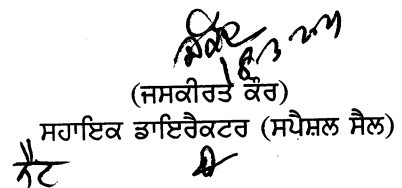 (ਜਸਕੀਰਤ ਕੌਰ)
ਸਹਾਇਕ ਡਾਇਰੈਕਟਰ (ਸਪੈਸ਼ਲ ਸੈਲ)
ਨੈਟ